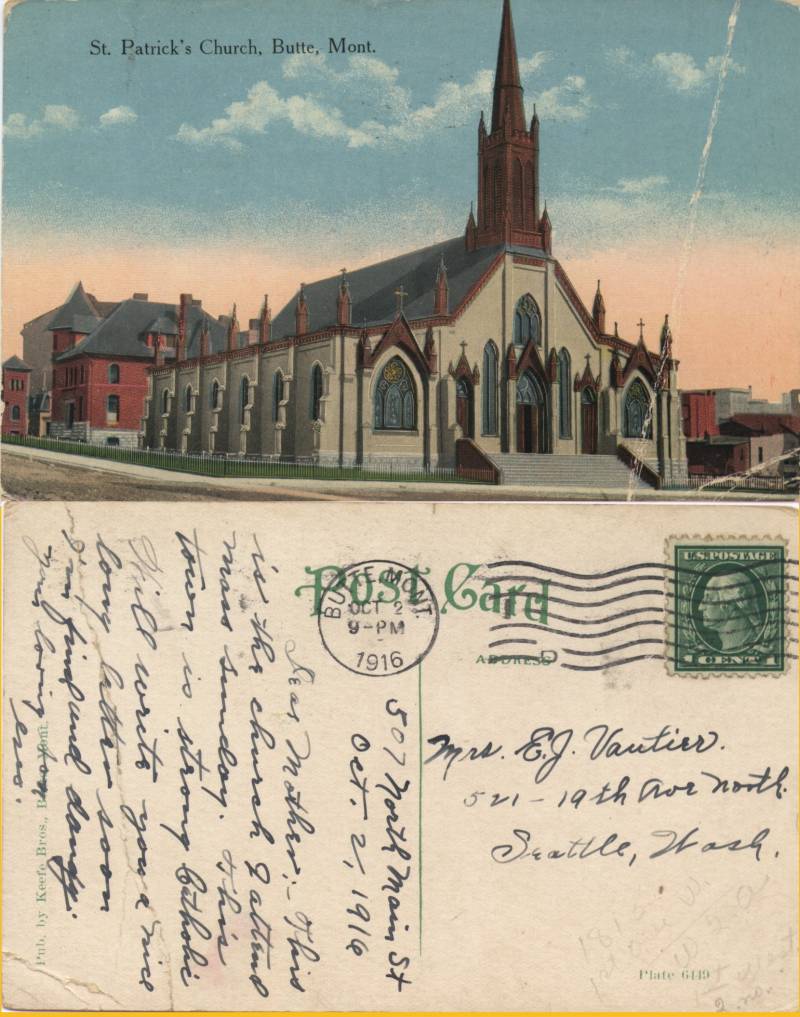 St. Patrick's Church, Butte, Mont.
Post Card
BUTTE, MONT.
OCT 2
9-PM
1916
U.S. POSTAGE
1 CENT 1
ADDRESS
507 North Main St
Oct. 2, 1916
Dear Mother:- This
is the church I attend
mass sunday. This
town is strong Catholic
Will write you a nice
long letter soon
I'm fine and dandy.
your loving son
Pub. by Keefe Bros., Butte, Mont.
Mrs. E.J. Vautier.
521-19th Ave North.
Seattle, Wash.
Plate 6449